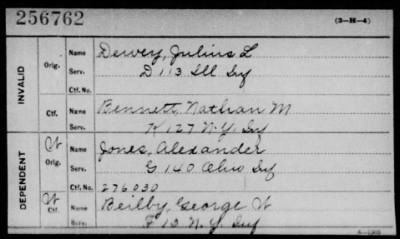 256762 (3-H-4)
INVALID
Orig. Name Dewey, Julius L
Serv. D 113 Ill Inf
Ctf. No.
Ctf. Name Bennett, Nathan M
Serv. K 127 N.Y. Inf
DEPENDENT
W Orig. Name Jones, Alexander
Serv. G 140 Ohio Inf
Ctf. No. 276030
W Ctf. Name Beilby, George W
Serv. F 10 N.Y. Inf